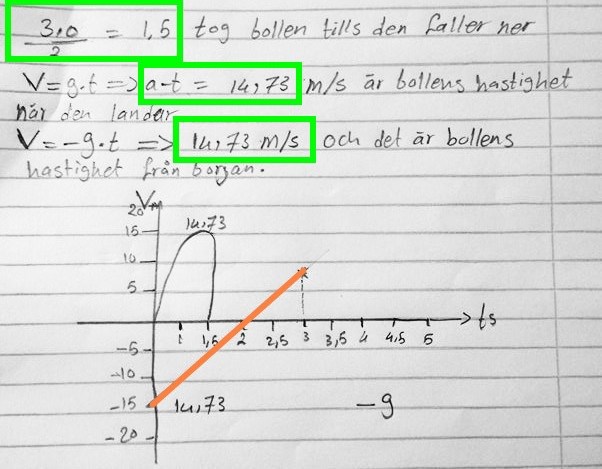 3,0/2 = 1,5 tog bollen tills den faller ner
V=g·t => a·t = 14,73 m/s är bollens hastighet
när den landar
V=-g·t => 14,73 m/s och det är bollens
hastighet från början.
Vm
20
14,73
15
10
5
1 1,5 2 2,5 3 3,5 4 4,5 5 ts
-5
-10
-15 14,73 -g
-20